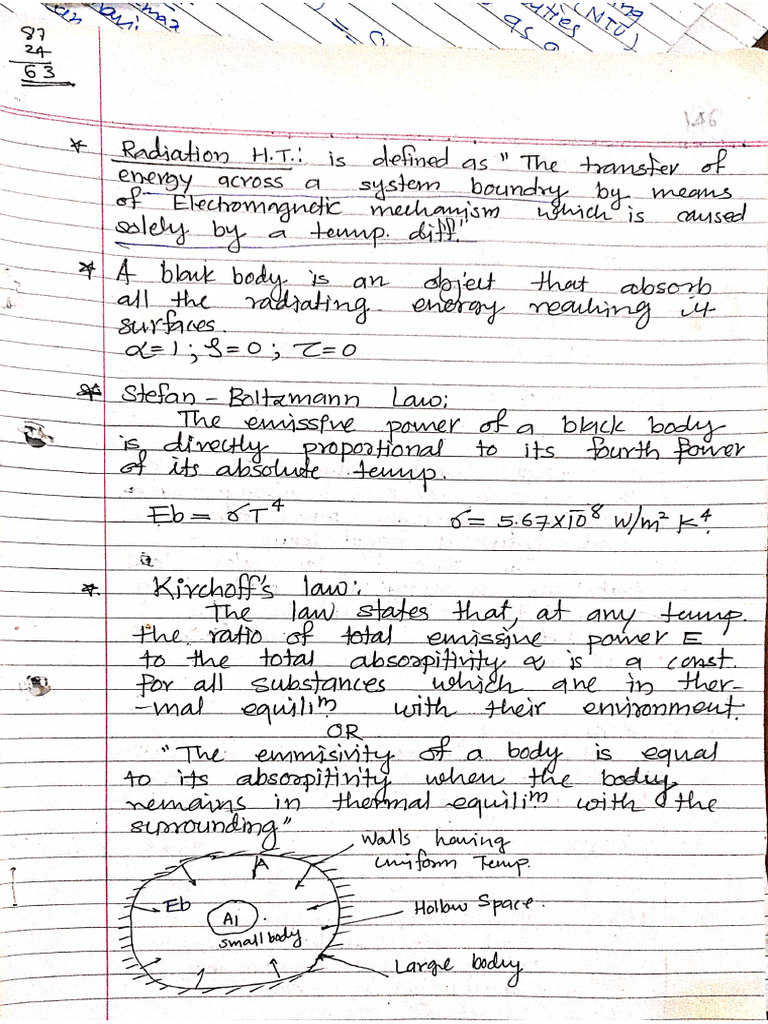 87
24
63
146
* Radiation H.T.: is defined as "The transfer of
energy across a system boundry by means
of Electromagnetic mechanism which is caused
solely by a temp. diff."
* A black body is an object that absorb
all the radiating energy reaching it
surfaces.
α=1; ρ=0; τ=0
* Stefan - Boltzmann Law:
The emissive power of a black body
is directly proportional to its fourth power
of its absolute temp.
Eb = σT⁴ σ = 5.67×10⁻⁸ W/m² K⁴.
* Kirchoff's law:
The law states that, at any temp.
the ratio of total emissive power E
to the total absorpitivity α is a const.
for all substances which are in ther-
-mal equiliᵐ with their environment.
OR
"The emmisivity of a body is equal
to its absorpitivity when the body
remains in thermal equiliᵐ with the
surrounding"
Walls having
uniform Temp.
A
Eb
A1
small body
Hollow Space.
Large body